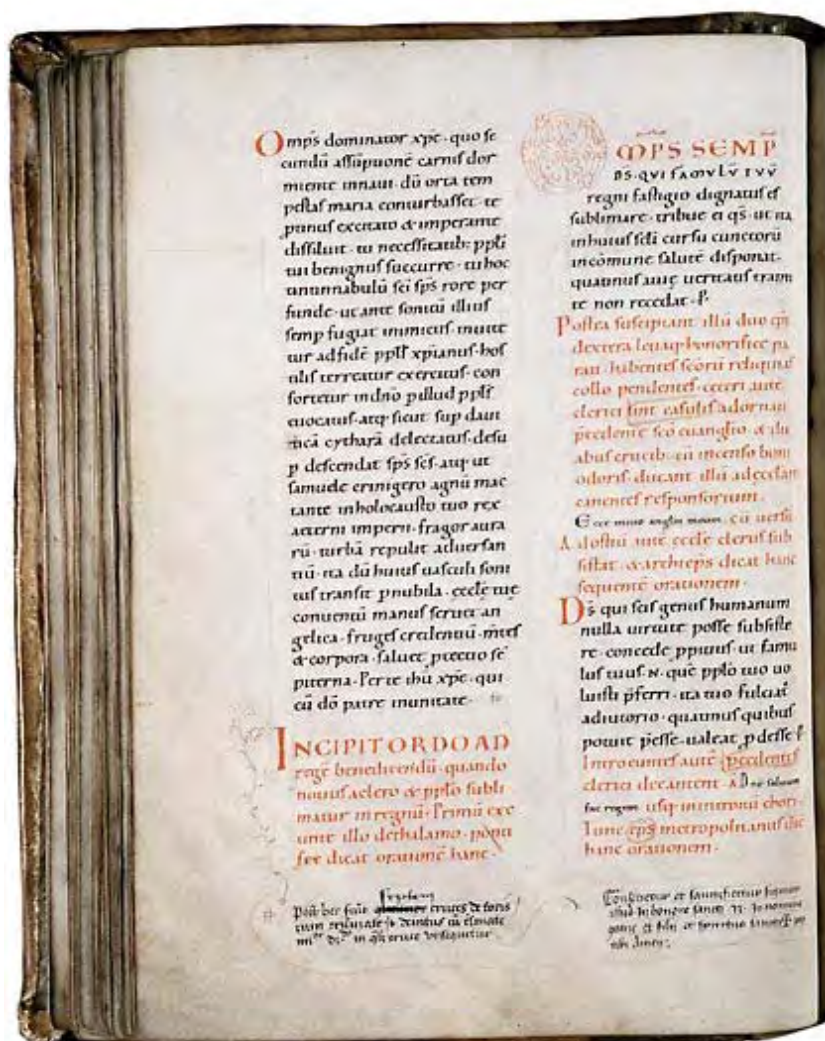 Omp̄s dominator xp̄e · quo se
cundū assūptionē carnis dor
miente in naui · dū orta tem
pestas maria conturbasset · te
ptinus excitato & imperante
dissiluit · tu necessitatib: ppl̄i
tui benignus succurre · tu hoc
tintinnabulū sc̄i sp̄s rore per
funde · ut ante sonitū illius
semp fugiat inimicus · inuite
tur ad fidē ppl̄s xp̄ianus · hos
tilis terreatur exercitus · con
fortetur in dn̄o p illud ppl̄s
euocatus · atq; sicut sup daui
ticā cytharā delectatus · desu
p descendat sp̄s sc̄s · atq; ut
samuele crinigero agnū mac
tante in holocausto tuo rex
aeterni imperii · fragor aura
rū · turbā repulit aduersan
tiū · ita dū huius uasculi soni
tus transit p nubila · ęcclę tuę
conuentū manus seruet an
gelica · fruges credentiū · m̄tes
& corpora · saluet ptectio sē
piterna · Per te ih̄u xp̄e · qui
cū dō patre in unitate ·
INCIPIT ORDO AD
regē benedicendū · quando
nouus a clero & pplo subli
matur in regnū · Primū exe
unte illo de thalamo · ponti
fex dicat orationē hanc ·
Post hec fiat cruces de foris
MP̄S SEMP
DS · QVI FAMVLV̄ TVV̄
regni fastigio dignatus es
sublimare · tribue ei qs̄ · ut ita
in huius sc̄li cursu cunctorū
in cōmune salutē disponat ·
quatinus a tuę ueritatis trami
te non recedat · P·
Postea suscipiant illū duo ep̄i
dextera leuaq; honorifice pa
rati · habentes sc̄orū reliquias
collo pendentes · ceteri autē
clerici sint casulis adornati
p̄cedente sc̄o euanglio · & du
abus crucib: · cū incenso boni
odoris · ducant illū ad ecclam
canentes responsorium ·
Ecce mitto anglm meum · cū uersu
Ad ostiū autē eccl̄e clerus sub
sistat · & archieps̄ dicat hanc
sequentē orationem ·
Ds̄ qui scis genus humanum
nulla uirtute posse subsiste
re · concede ppitius · ut famu
lus tuus · N · quē pplo tuo uo
luisti p̄ferri · ita tuo fulciat̄
adiutorio · quatinus quibus
potuit p̄esse · ualeat pdesse P·
Introeuntes autē p̄cedentes
clerici decantent · A Dne saluum
fac regem usq; in introitū chori ·
Tunc ep̄s metropolitanus dic
hanc orationem ·
Consecretur et sanctificetur signum
istud in honore sancti N · In nomine
patris et filii et spiritus sancti
Amen ;